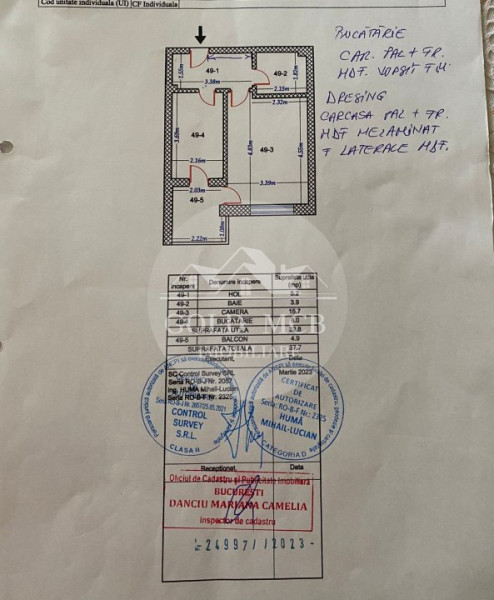 Cod unitate individuala (UI) CF Individuala
BUCĂTĂRIE
CAR. PAL + FR.
MDF. VOPSIT T.M.
DRESING
CARCASA PAL + FR.
MDF MELAMINAT
+ LATERALE MDF.
49-1
3.38m
49-2
2.15m
2.32m
49-4
49-3
4.83m
4.55m
2.16m
3.39m
2.03m
49-5
2.22m
Nr. incapere Denumire incapere Suprafata utila (mp)
49-1 HOL 5.2
49-2 BAIE 3.9
49-3 CAMERA 15.7
49-4 BUCATARIE
SUPRAFATA UTILA
49-5 BALCON 4.9
SUPRAFATA TOTALA
Executant, Data
SC Control Survey SRL Martie 2023
Seria RO-B-J Nr. 2057
Ing. HUMĂ Mihail-Lucian
Seria RO-B-F Nr. 2325
CONTROL
SURVEY
S.R.L.
CLASA II
CERTIFICAT
DE
AUTORIZARE
Seria: RO-B-F Nr.: 2325
HUMĂ
MIHAIL-LUCIAN
CATEGORIA D
Receptionat, Data
Oficiul de Cadastru și Publicitate Imobiliară
BUCUREȘTI
DANCIU MARIANA CAMELIA
Inspector de cadastru
24997//2023-